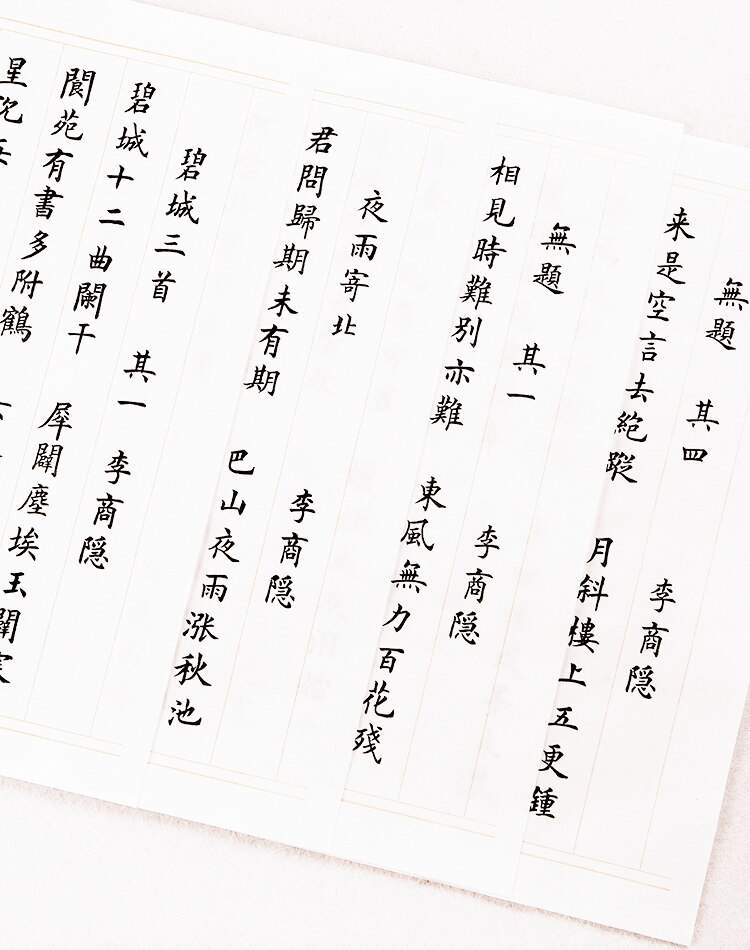 無題 其四 李商隐
来是空言去絕蹤 月斜樓上五更鍾
無題 其一 李商隐
相見時難别亦難 東風無力百花殘
夜雨寄北 李商隐
君問歸期未有期 巴山夜雨漲秋池
碧城三首 其一 李商隐
碧城十二曲闌干 犀闢塵埃玉闢寒
閬苑有書多附鶴
星沉